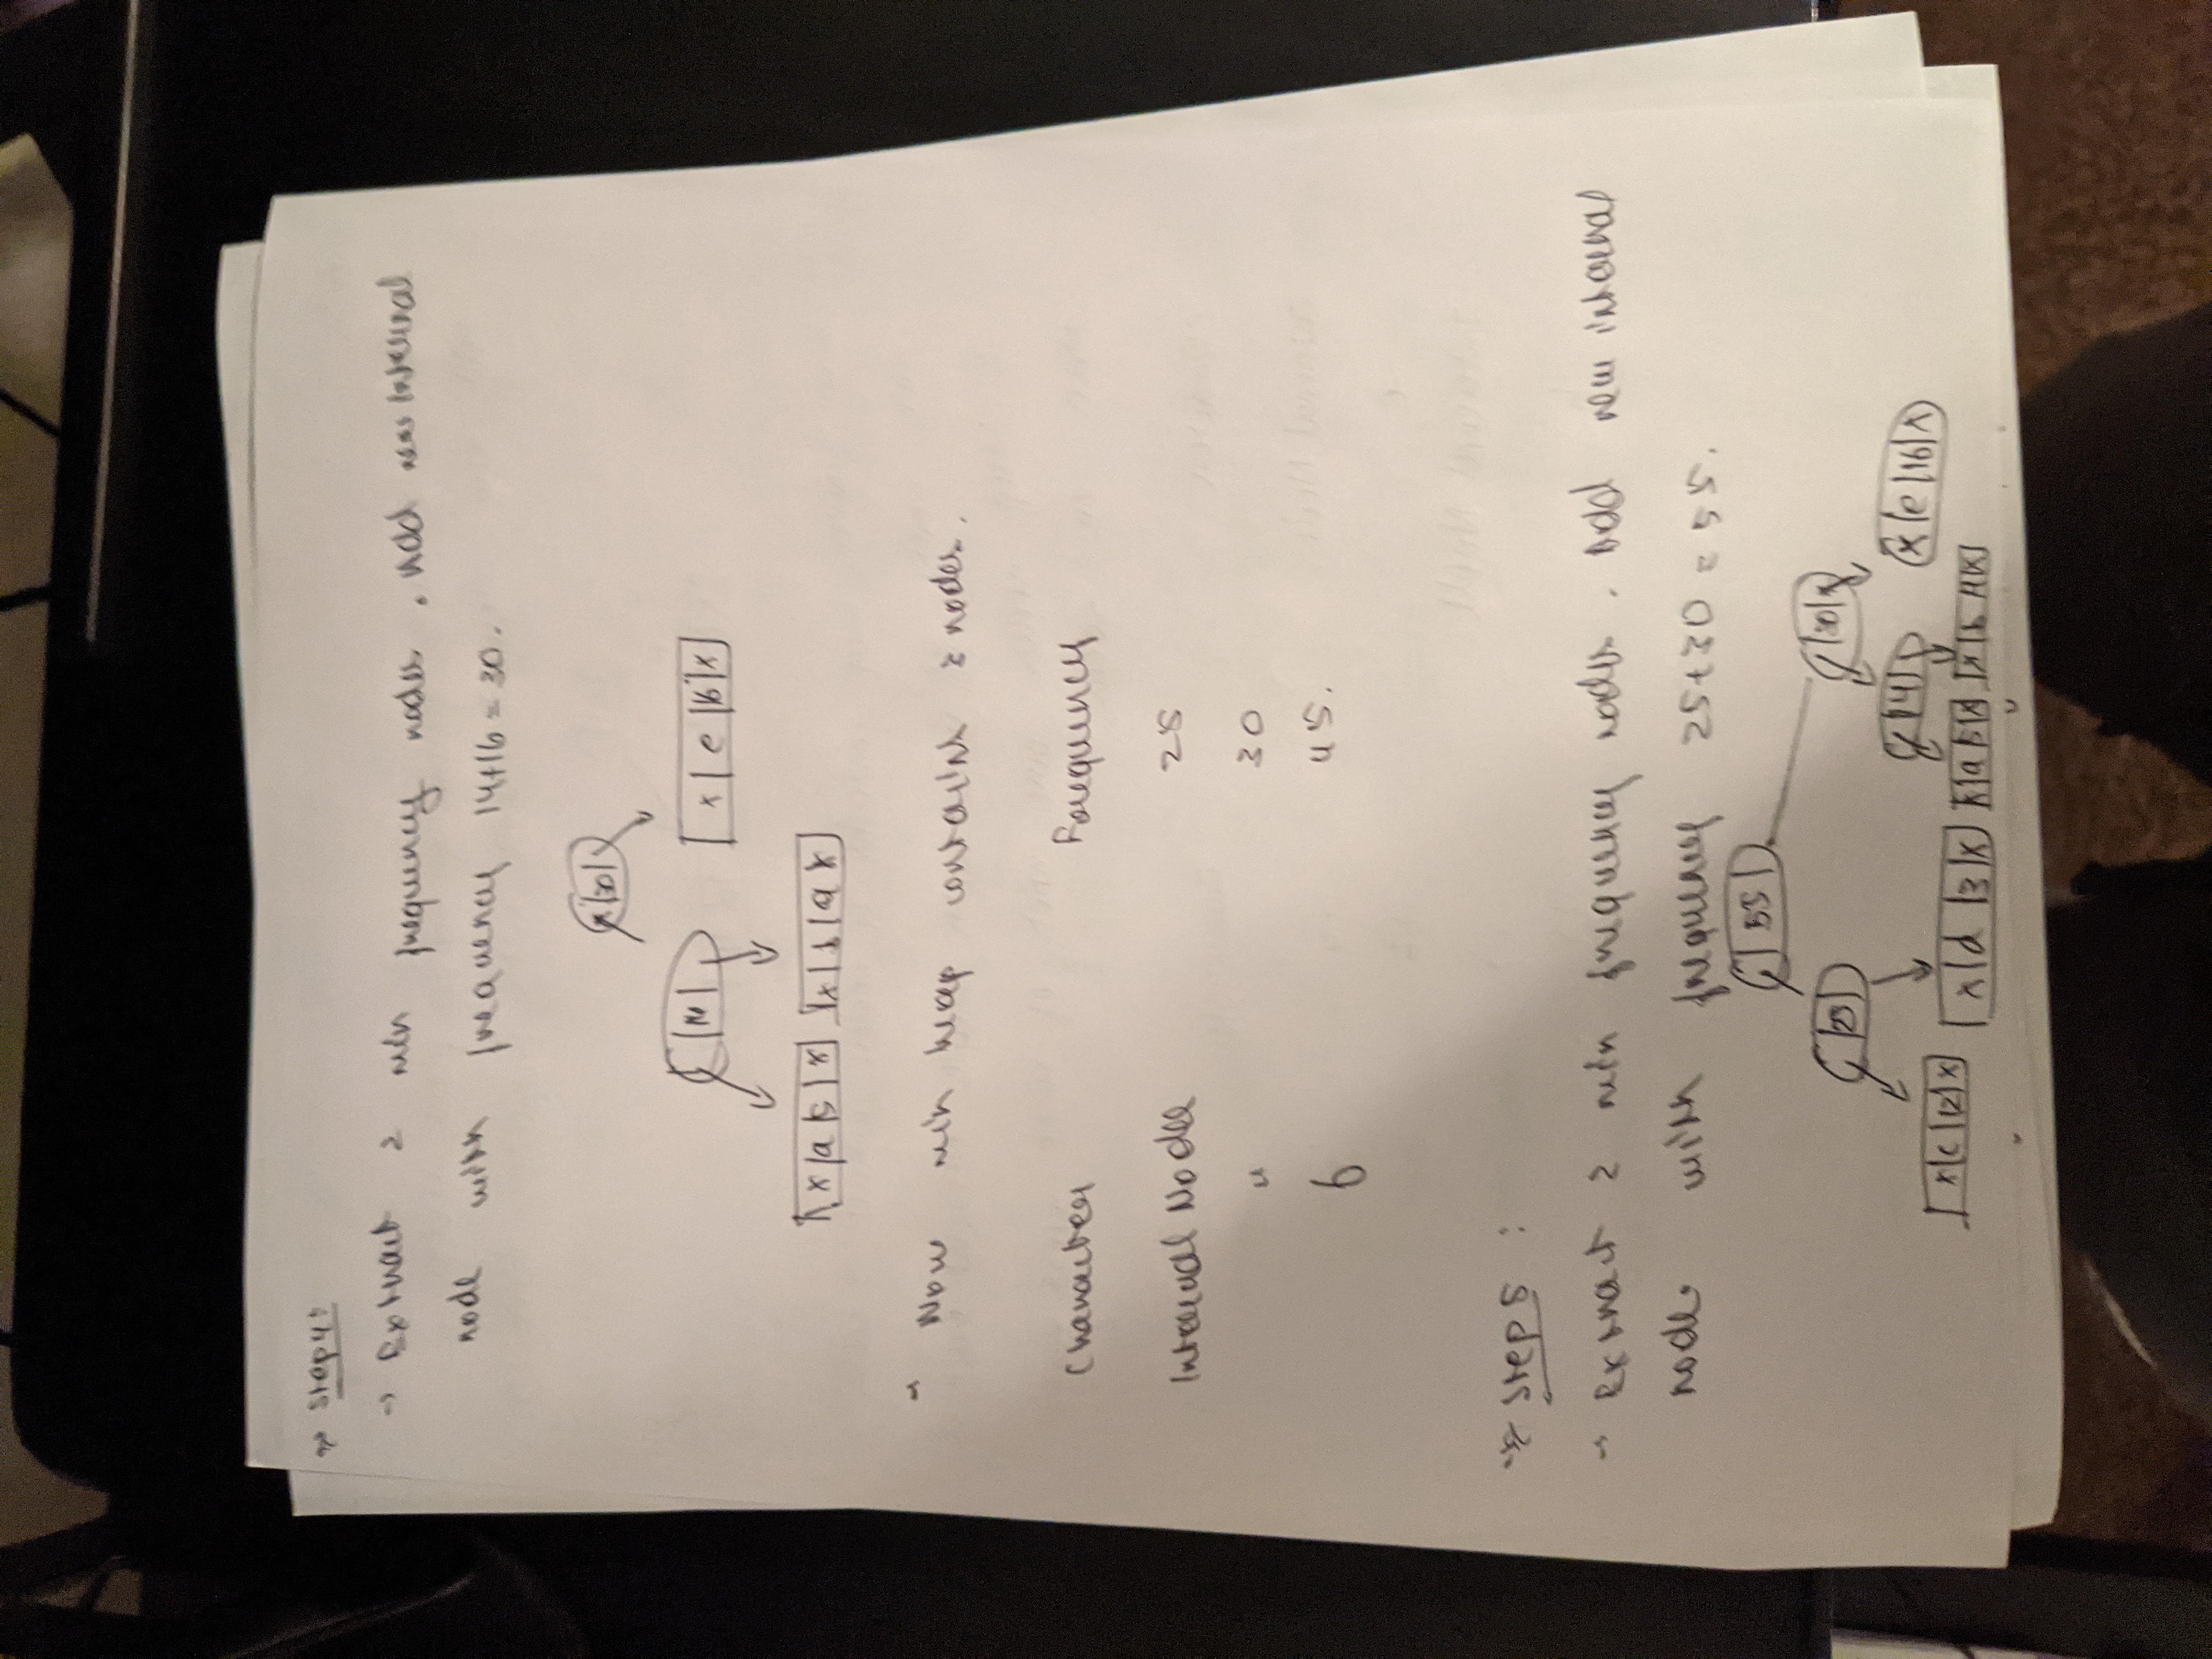 ⇒ Step 4:
→ Extract 2 min frequency nodes. Add new internal
node with frequency 14+16 = 30.
30
14
x | e | 16 | x
x | a | 5 | x
→ Now min heap contains 3 nodes.
Character Frequency
Internal Node 25
" 30
45.
⇒ Step 5:
→ Extract 2 min frequency nodes. Add new internal
node with frequency 25+30 = 55.
55
25 30
14 x | e | 16 | x
x | c | 12 | x x | d | 13 | x x | a | 5 | x